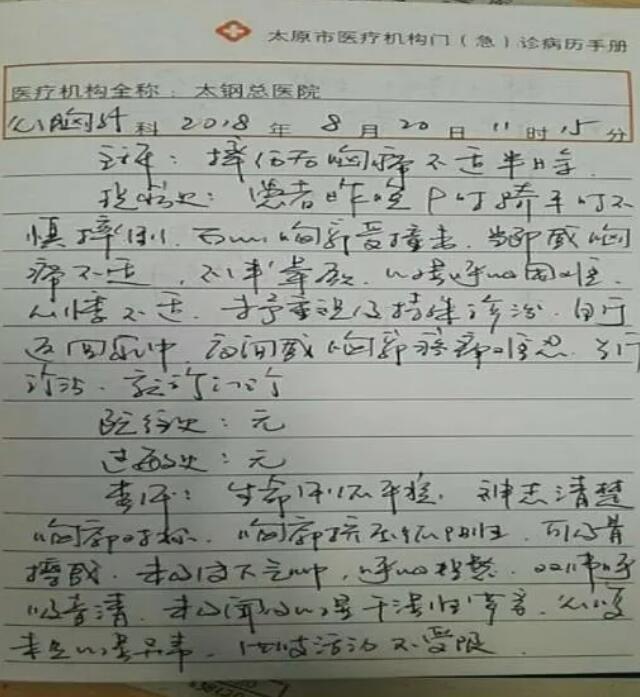 太原市医疗机构门(急)诊病历手册
医疗机构全称:太钢总医院
心胸外科 2018年 8月20日 11时15分
主诉:摔伤后胸痛不适半日余.
现病史:患者昨晚 骑车时不
慎摔倒, 胸部受撞击,当即感胸
痛不适, 呼吸困难,
不适,未予重视及特殊诊治,自行
返回家中,夜间感胸部疼痛难忍,
诊治,
既往史:无
过敏史:无
查体:生命体征平稳,神志清楚
胸廓对称,胸廓挤压征阳性,可及骨
擦感,未及皮下气肿,呼吸 双肺呼
吸音清,未闻及明显干湿性啰音,心
未见明显异常,四肢活动不受限.